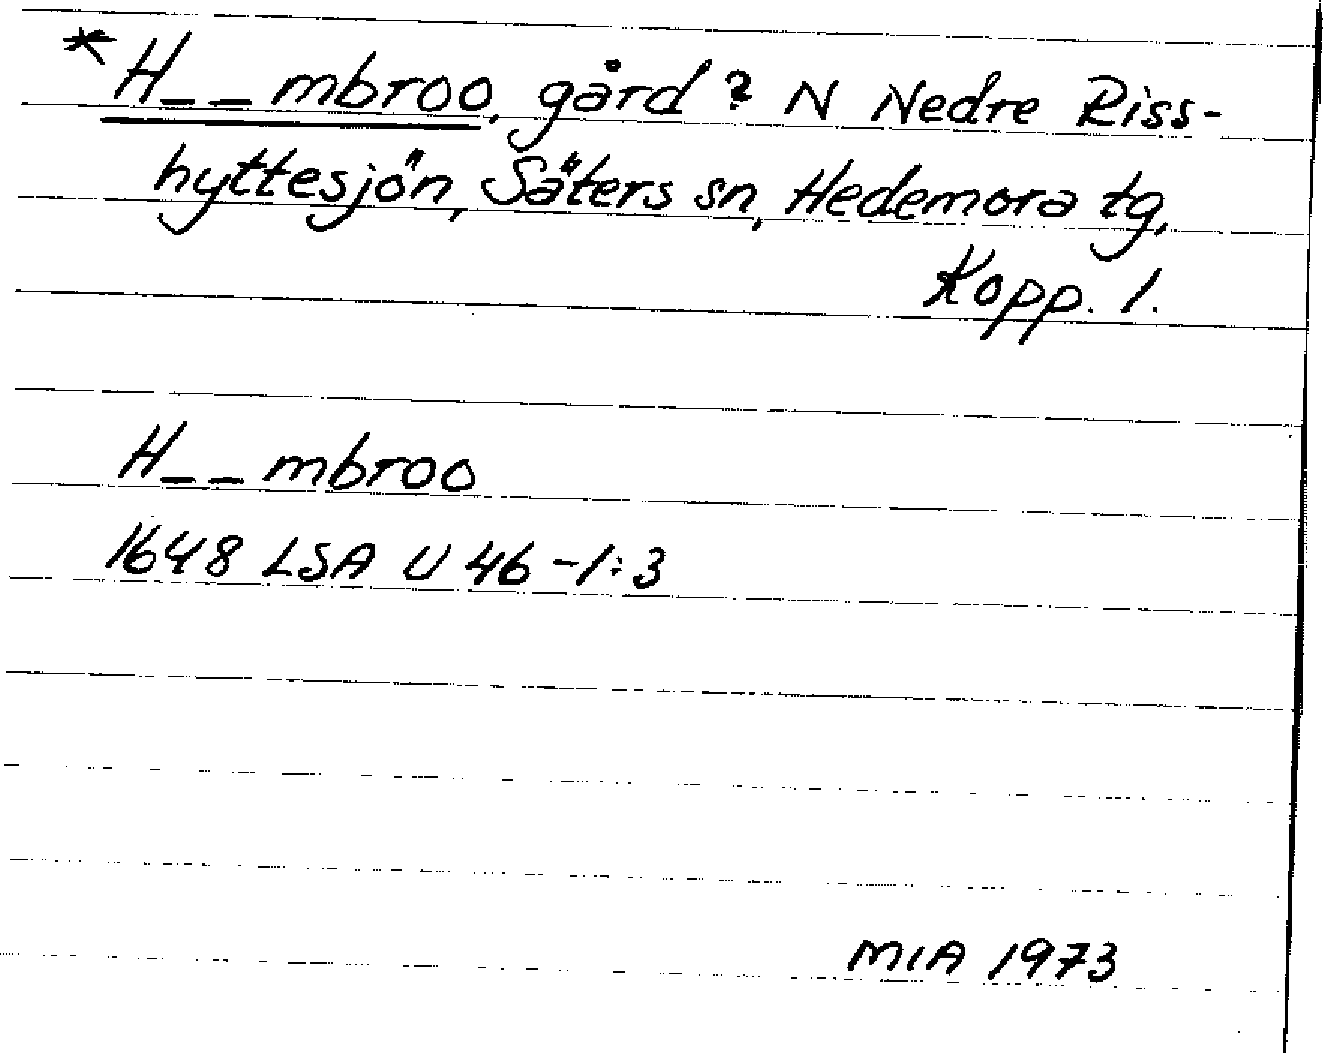 *H__mbroo, gård? N Nedre Riss-
hyttesjön, Säters sn, Hedemora tg,
Kopp. l.
H__mbroo
1648 LSA U 46-1:3
MIA 1973